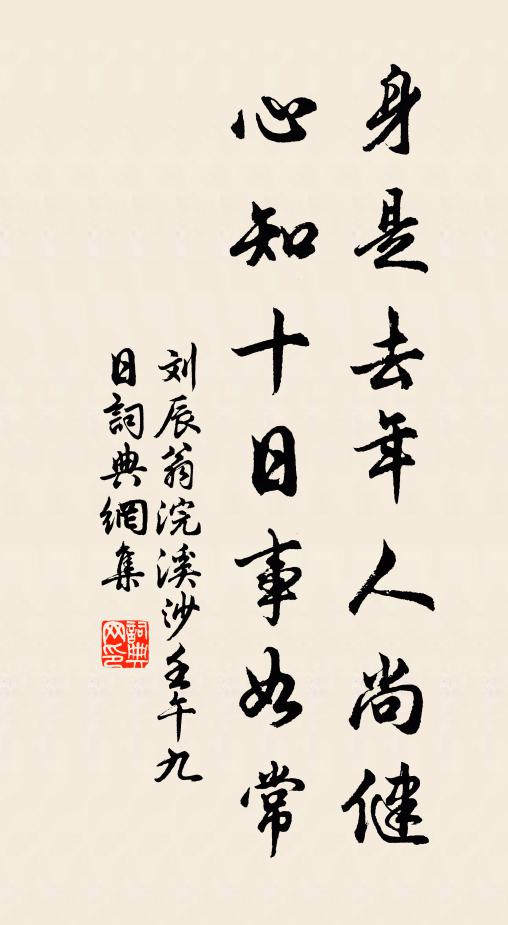 身是去年人尚健
心知十日事如常
刘辰翁浣溪沙壬午九
日詞典網集
詞典网印